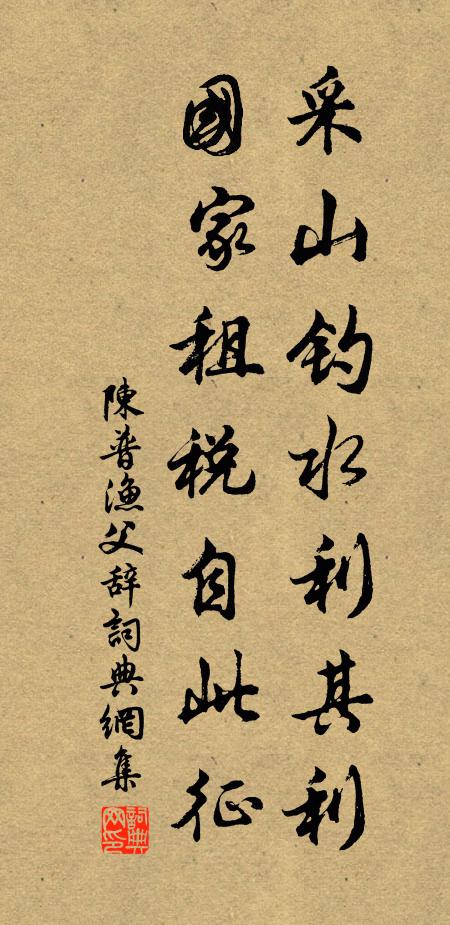 采山釣水利其利
國家租稅自此征
陳普漁父辞詞典網集
詞典網印